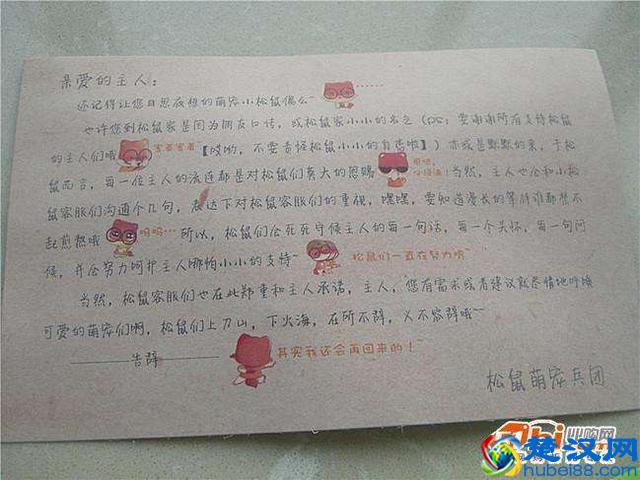 亲爱的主人：
还记得让您日思夜想的萌宠小松鼠俩么~
也许您到松鼠家是因为朋友口传，或松鼠家小小的名气（PS：要谢谢所有支持松鼠
的主人们哦 害羞害羞【哎哟，不要责怪松鼠小小的自恋啦】）亦或是默默的来，于松
鼠而言，每一位主人的流连都是对松鼠们莫大的恩赐 当然，主人也会和小松
鼠客服们沟通个几句，表达下对松鼠客服们的重视，嘿嘿，要知道漫长的等待谁都禁不
起煎熬哦 呜呜… 所以，松鼠们会死死守候主人的每一句话，每一个关怀，每一句问
候，并会努力呵护主人哪怕小小的支持~ 松鼠们一直在努力哦~
当然，松鼠客服们也在此郑重和主人承诺，主人，您有需求或者建议就尽情地呼唤
可爱的萌宠们啊，松鼠们上刀山，下火海，在所不辞，义不容辞哦~
告辞 其实我还会再回来的！~
松鼠萌宠兵团
hi 购网
楚汉网
hubei88.com